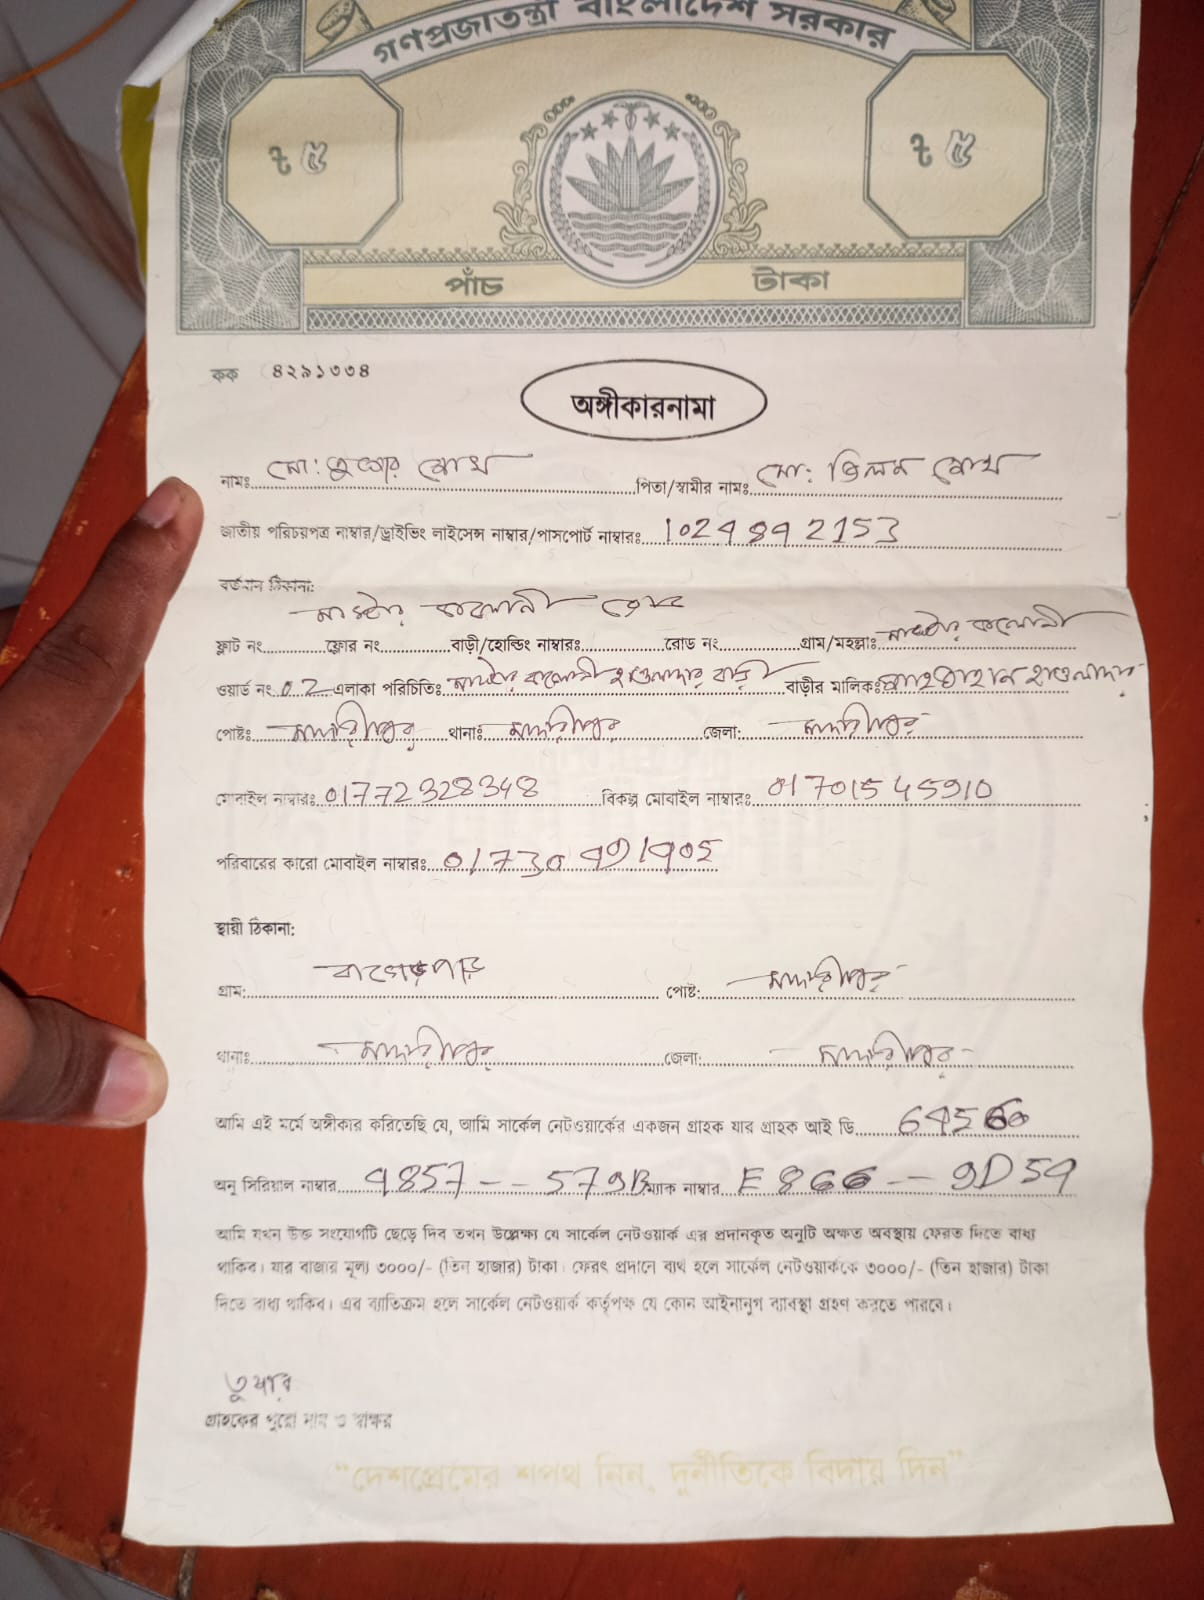 গণপ্রজাতন্ত্রী বাংলাদেশ সরকার
৳ ৫ ৳ ৫
পাঁচ টাকা
কক ৪২৯১৩৩৪
অঙ্গীকারনামা
নামঃ মো: তুষার শেখ পিতা/স্বামীর নামঃ মো: মিলন শেখ
জাতীয় পরিচয়পত্র নাম্বার/ড্রাইভিং লাইসেন্স নাম্বার/পাসপোর্ট নাম্বারঃ
বর্তমান ঠিকানা:
মাস্টার কলোনী
ফ্লাট নং ফ্লোর নং বাড়ী/হোল্ডিং নাম্বারঃ রোড নং গ্রাম/মহল্লাঃ মাস্টার কলোনী
ওয়ার্ড নং 02 এলাকা পরিচিতিঃ মাস্টার কলোনী হাওলাদার বাড়ী বাড়ীর মালিকঃ হাওলাদার
পোষ্টঃ মাদারীপুর থানাঃ মাদারীপুর জেলা: মাদারীপুর
মোবাইল নাম্বারঃ 01772328348 বিকল্প মোবাইল নাম্বারঃ
পরিবারের কারো মোবাইল নাম্বারঃ
স্থায়ী ঠিকানা:
গ্রাম: পোষ্ট: মাদারীপুর
থানাঃ মাদারীপুর জেলা: মাদারীপুর
আমি এই মর্মে অঙ্গীকার করিতেছি যে, আমি সার্কেল নেটওয়ার্কের একজন গ্রাহক যার গ্রাহক আই ডি
অনু সিরিয়াল নাম্বার ম্যাক নাম্বার
আমি যখন উক্ত সংযোগটি ছেড়ে দিব তখন উল্লেক্ষ্য যে সার্কেল নেটওয়ার্ক এর প্রদানকৃত অনুটি অক্ষত অবস্থায় ফেরত দিতে বাধ্য
থাকিব। যার বাজার মূল্য ৩০০০/- (তিন হাজার) টাকা। ফেরৎ প্রদানে ব্যর্থ হলে সার্কেল নেটওয়ার্ককে ৩০০০/- (তিন হাজার) টাকা
দিতে বাধ্য থাকিব। এর ব্যাতিক্রম হলে সার্কেল নেটওয়ার্ক কর্তৃপক্ষ যে কোন আইনানুগ ব্যাবস্থা গ্রহণ করতে পারবে।
তুষার
গ্রাহকের পুরো নাম ও স্বাক্ষর
“দেশপ্রেমের শপথ নিন, দুর্নীতিকে বিদায় দিন”